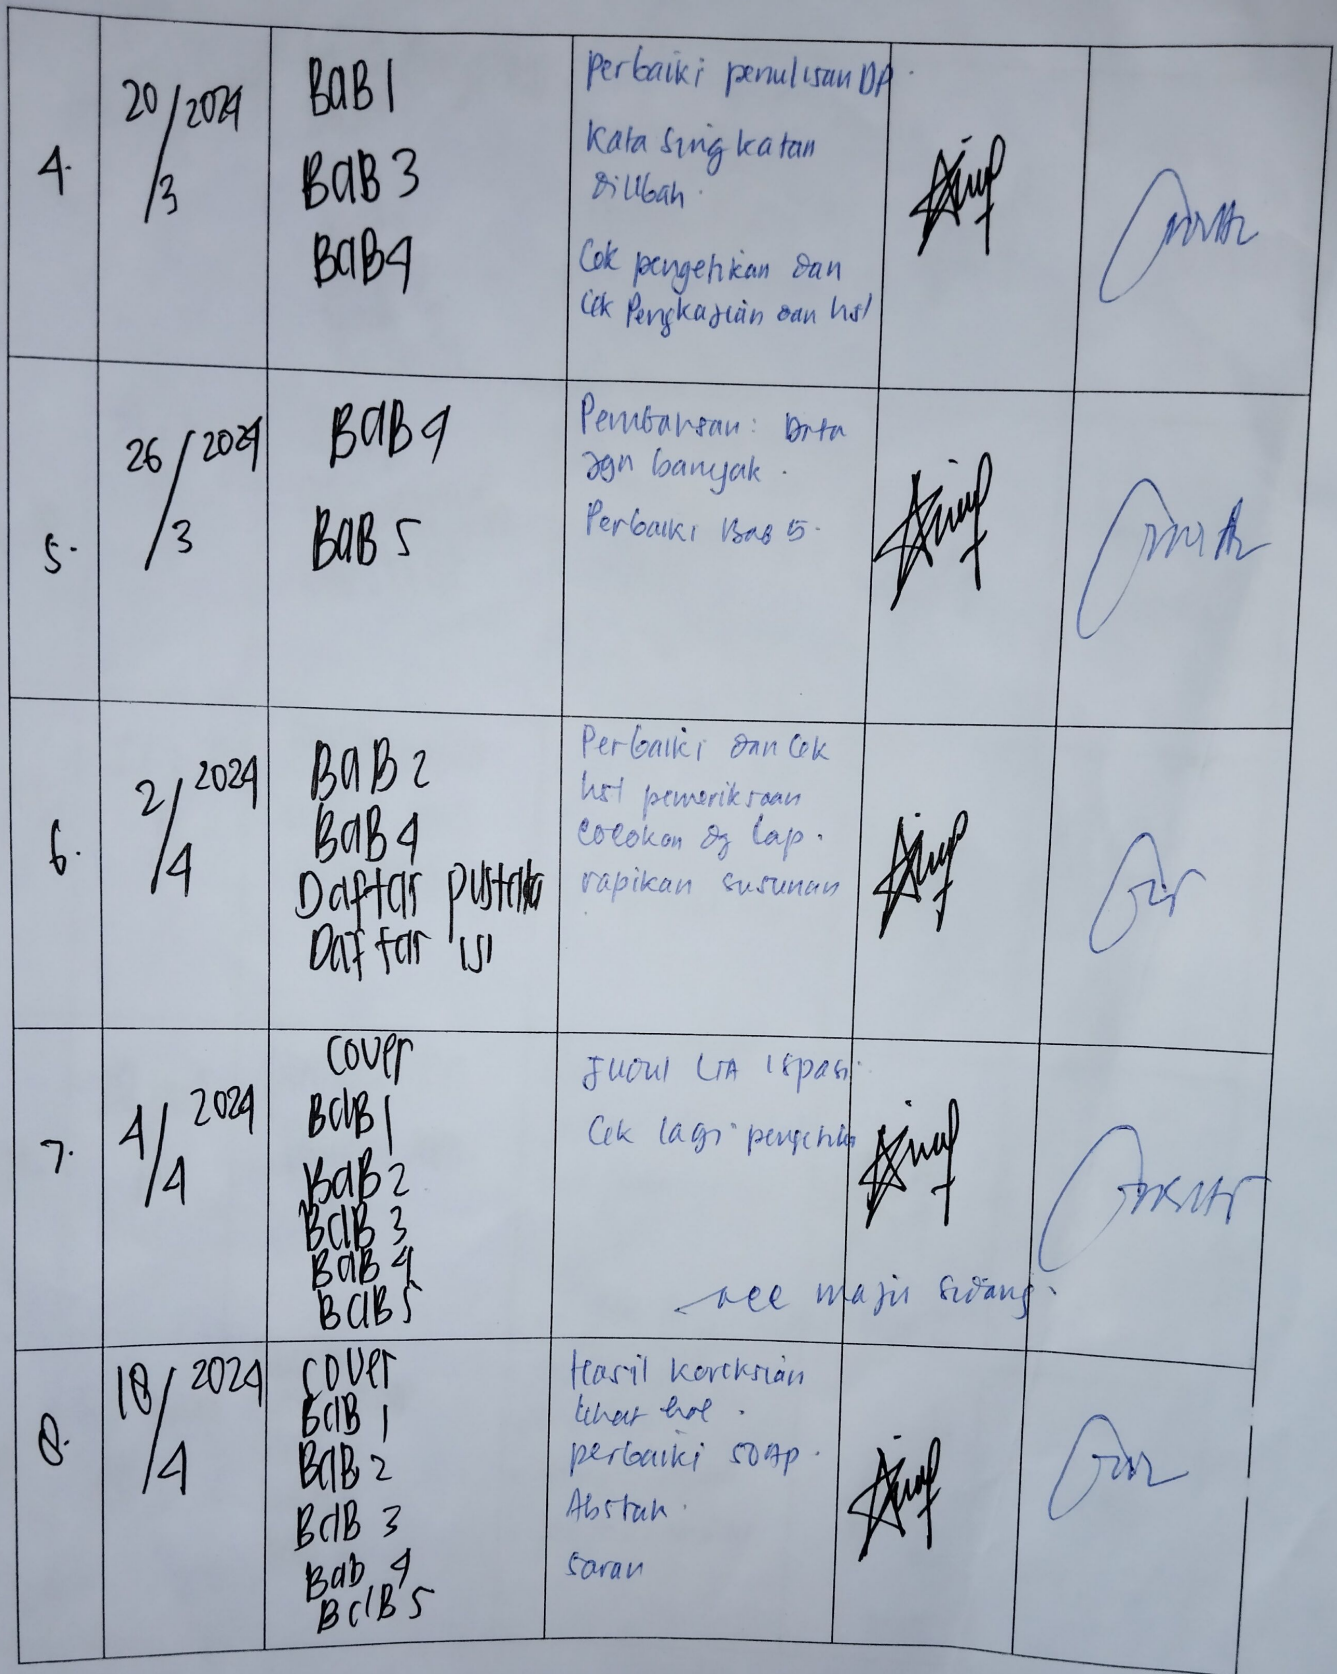 4.
20/3 2024
BaB 1
BaB 3
BaB 4
Perbaiki penulisan DP.
Kata Singkatan
diubah.
Cek pengetikan dan
Cek Pengkajian dan hsl
5.
26/3 2024
BaB 4
BaB 5
jgn banyak.
Perbaiki Bab 5.
6.
2/4 2024
BaB 2
BaB 4
Daftar pustaka
Daftar isi
Perbaiki dan Cek
hsl pemeriksaan
cocokan dg Lap.
rapikan susunan
7.
4/4 2024
cover
BaB 1
BaB 2
BaB 3
BaB 4
BaB 5
Judul LTA 1 spasi.
Cek lagi
acc maju sidang.
8.
18/4 2024
cover
BaB 1
BaB 2
BaB 3
Bab 4
BaB 5
Hasil koreksian
perbaiki SOAP.
Saran